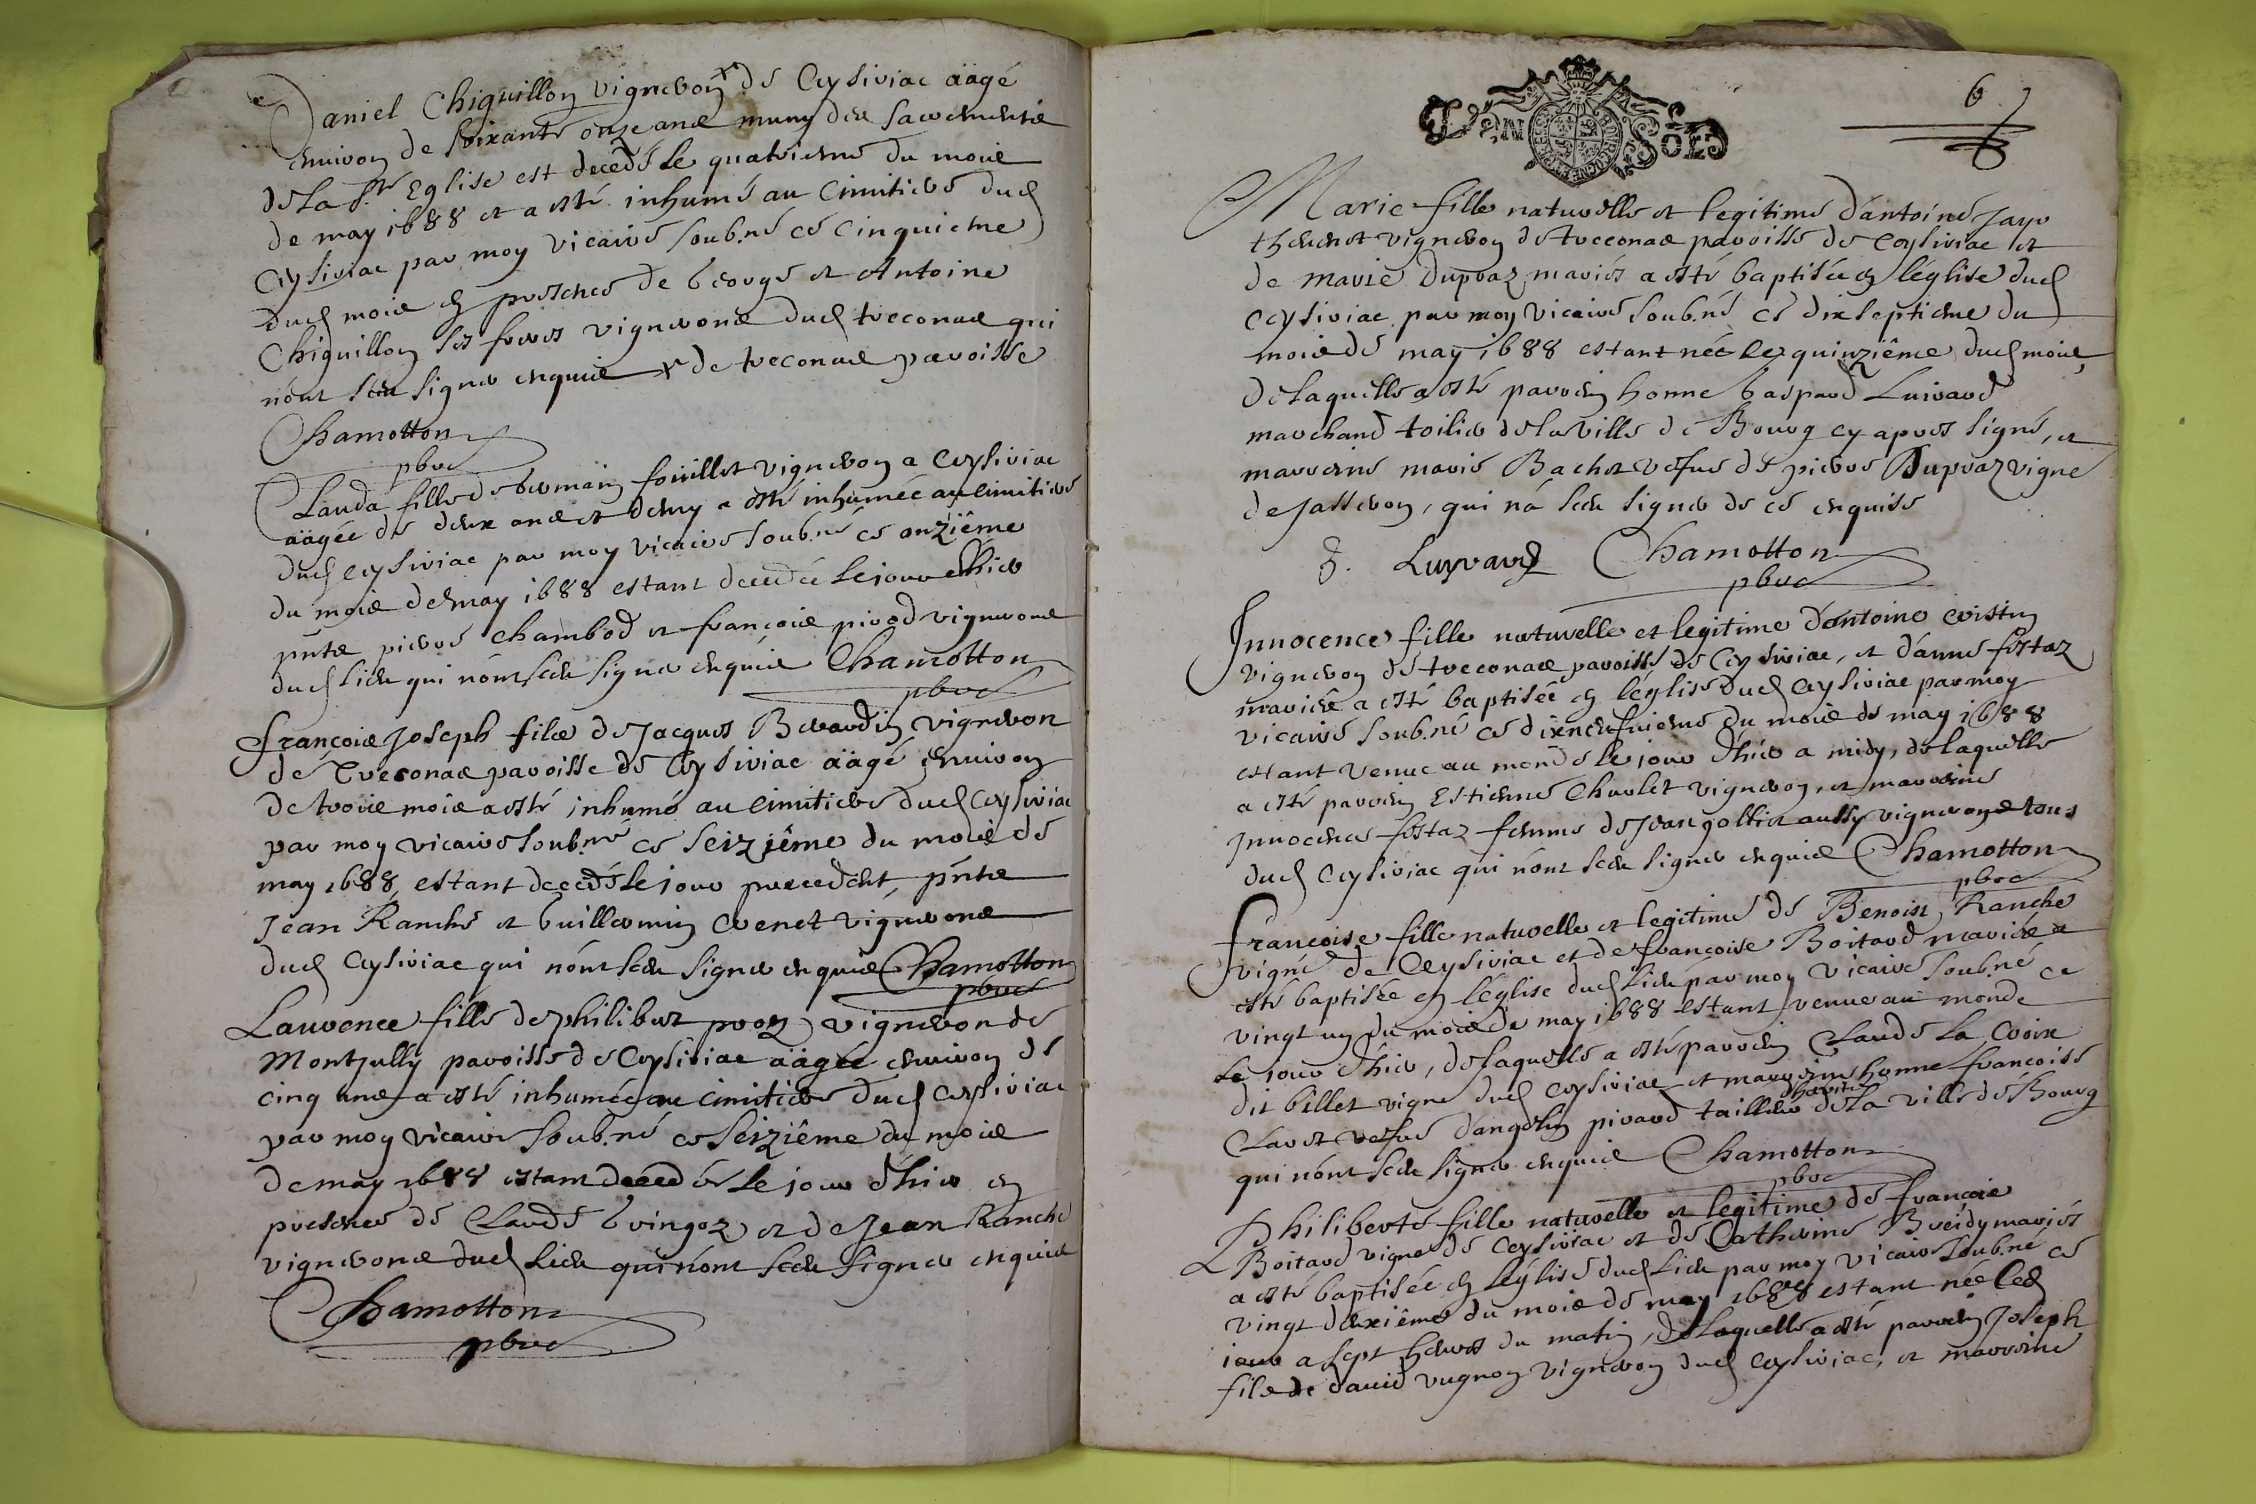 Daniel Chiguillon vigneron x de Ceysiriac äagé
enuiron de soixante onze ans muny des sacrements
de la ste Eglise est decedé le quatrieme du mois
de may 1688 et a esté inhumé au cimitiere dud
Ceysiriac par moy vicaire soub.né ce cinquieme
dud mois en presence de George et Antoine
Chiguillon ses freres vignerons dud treconas qui
n'ont sceu signer enquis x de treconas paroisse
Chamotton
pbre
Clauda fille de Germain foüillet vigneron a Ceysiriac
äagée de deux ans et demy a esté inhumée au cimitiere
dud Ceysiriac par moy vicaire soub.né ce onziême
du mois de may 1688 estant decedée le jour d'hier
pnts pierre Chambod et françois pirod vignerons
dud lieu qui n'ont sceu signer enquis Chamotton
pbre
françois Joseph fils de Jacques Beraudin vigneron
de Treconas paroisse de Ceysiriac äagé enuiron
de trois mois a esté inhumé au cimitiere dud Ceysiriac
par moy vicaire soub.né ce seiziême du mois de
may 1688 estant decedé le jour precedent, pnts
Jean Ranche et Guillermin Cvenet vignerons
dud Ceysiriac qui n'ont sceu signer enquis Chamotton
pbre
Laurence fille de philibert proz vigneron de
Montjully paroisse de Ceysiriac äagée enuiron de
cinq ans a esté inhumée au cimitiere dud Ceysiriac
par moy vicaire soub.né ce seiziême du mois
de may 1688 estant decedée le jour d'hier en
presence de Claude Gringoz et de Jean Ranche
vignerons dud lieu qui n'ont sceu signer enquis
Chamotton
pbre
6
Marie fille naturelle et legitime d'antoine Jayr
thevenet vigneron de treconas paroisse de Ceysiriac et
de marie Dupraz mariés a esté baptisée en l'église dud
Ceysiriac par moy vicaire soub.né ce dixseptieme du
mois de may 1688 estant née le quinziême dud mois,
de laquelle a esté parrein honne Gaspard Luirard
marchand toilier de la ville de Bourg cy apres signé, et
marreine marie Bachet vefue de pierre Dupraz vigne
de Jasseron, qui n'a sceu signer de ce enquise
G. Luyrard Chamotton
pbre
Innocence fille naturelle et legitime d'antoine Cristin
vigneron de treconas paroisse de Ceysiriac, et d'anne festaz
mariés a esté baptisée en l'église dud Ceysiriac par moy
vicaire soub.né ce dixneufuieme du mois de may 1688
estant venue au monde le jour d'hier a midy, de laquelle
a esté parrein Estienne Chaulet vigneron, et marreine
Innocence festaz femme de Jean gollier aussy vigneron tous
dud Ceysiriac qui n'ont sceu signer enquis Chamotton
pbre
françoise fille naturelle et legitime de Benoist Ranche
vigne de Ceysiriac et de françoise Boitard mariés a
esté baptisée en l'église dud lieu par moy vicaire soub.né ce
vingt un du mois de may 1688 estant venue au monde
le jour d'hier, de laquelle a esté parrein Claude La Croix
dit billet vigne dud Ceysiriac et marreine honne françoise
Claret vefue d'angelin pirard tailleur d'habits de la ville de Bourg
qui n'ont sceu signer enquis Chamotton
pbre
Philiberte fille naturelle et legitime de françois
Boitard vigne de Ceysiriac et de Catherine Breidy mariés
a esté baptisée en l'église dud lieu par moy vicaire soub.né ce
vingt deuxiême du mois de may 1688 estant née led
jour a sept heures du matin, de laquelle a esté parrein Joseph
fils de dauid vugnon vigneron dud Ceysiriac, et marreine